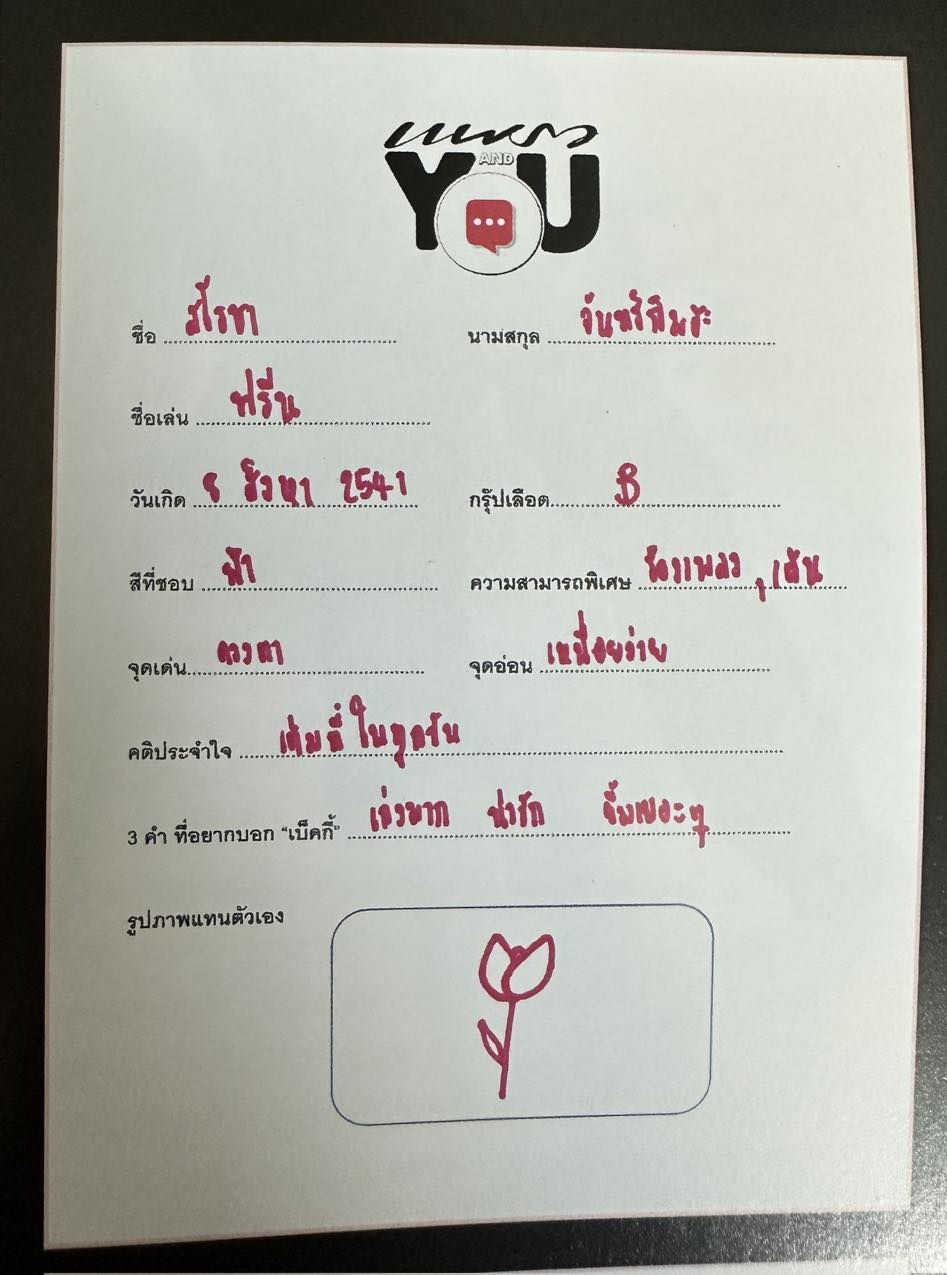 แพรว
AND
YOU
ชื่อ สโรชา นามสกุล จันทร์กิมฮะ
ชื่อเล่น ฟรีน
วันเกิด 8 สิงหา 2541 กรุ๊ปเลือด B
สีที่ชอบ ฟ้า ความสามารถพิเศษ ร้องเพลง , เต้น
จุดเด่น ดวงตา จุดอ่อน เหนื่อยง่าย
คติประจำใจ เต็มที่ ในทุกวัน
3 คำ ที่อยากบอก "เบ็คกี้" เก่งมาก น่ารัก ยิ้มเยอะๆ
รูปภาพแทนตัวเอง